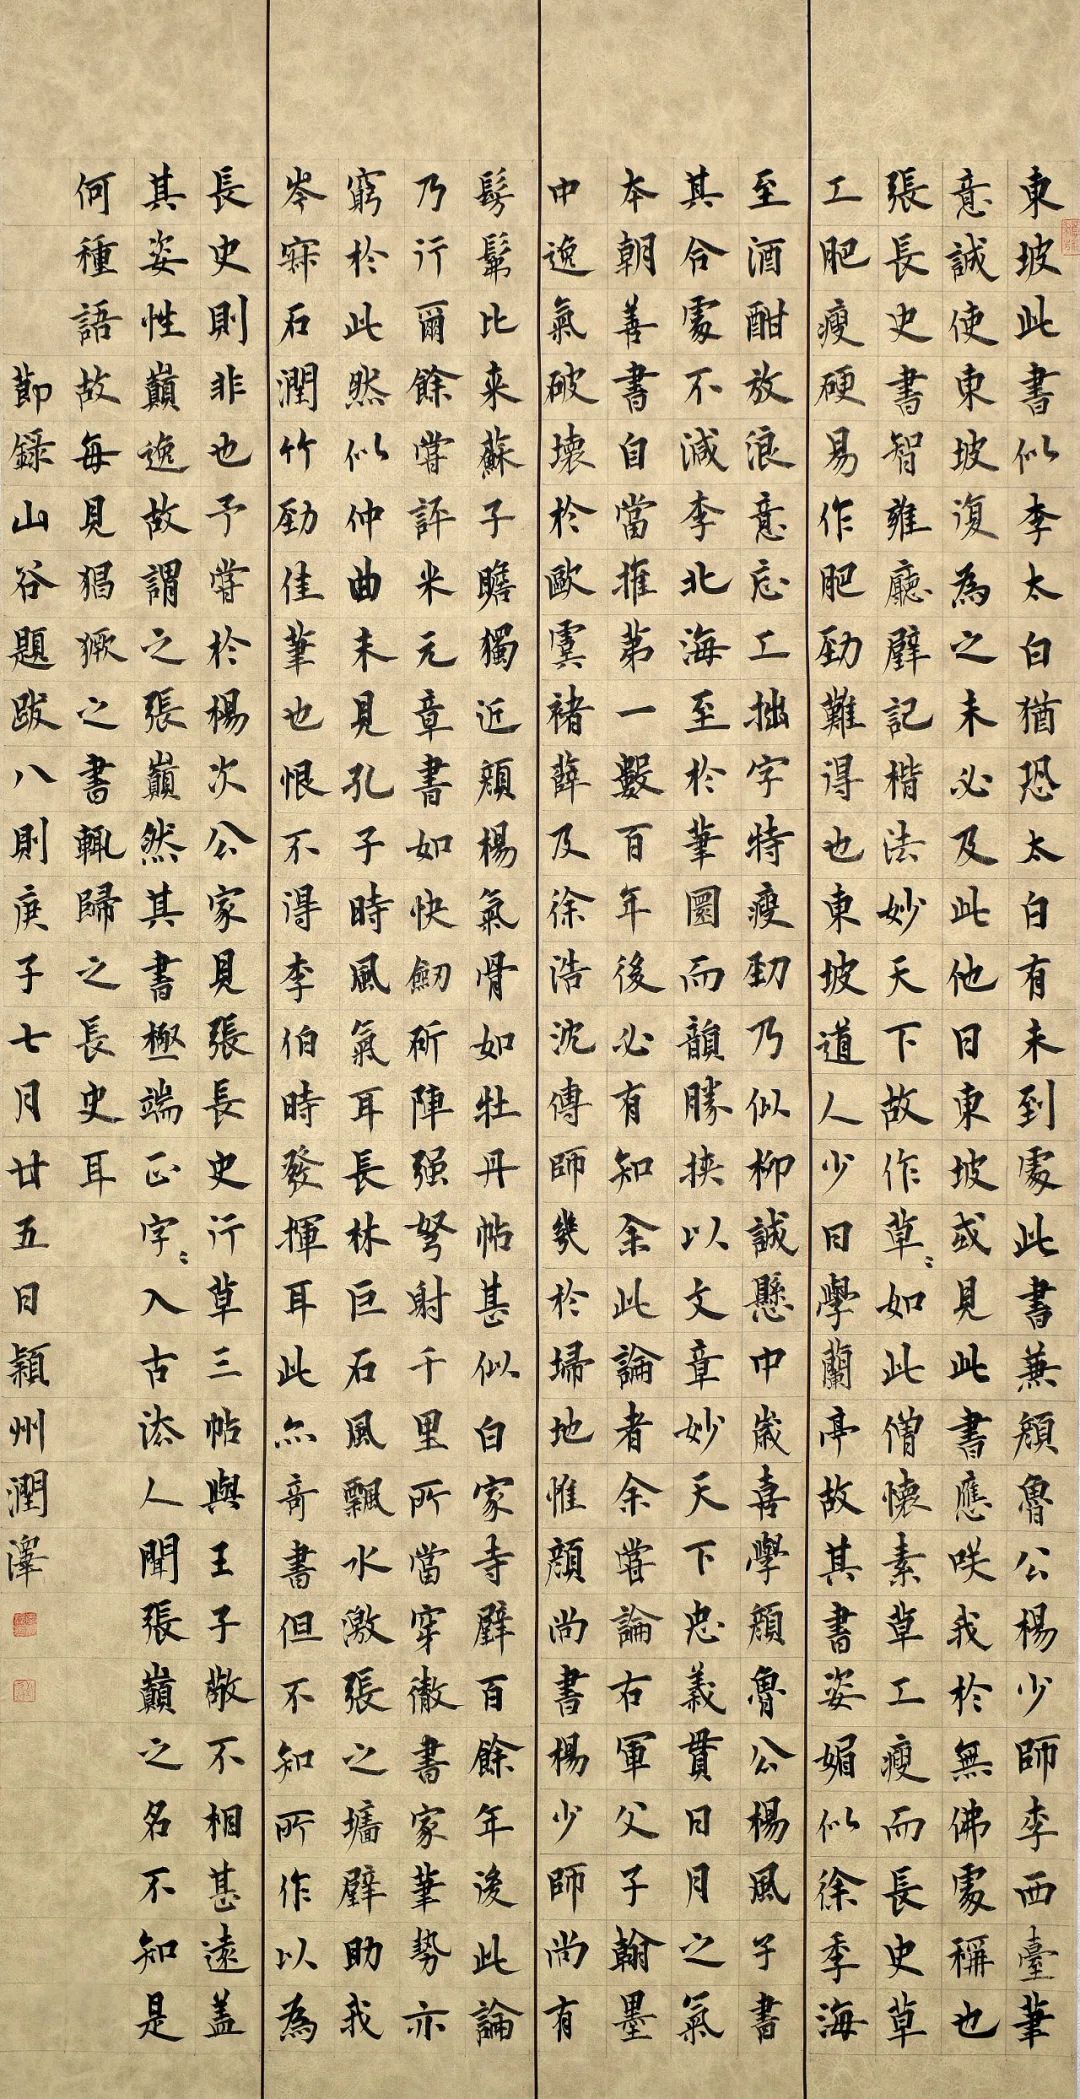 東坡此書似李太白猶恐太白有未到處此書兼顏魯公楊少師李西臺筆
意誠使東坡復為之未必及此他日東坡或見此書應咲我於無佛處稱也
張長史書智雍廳壁記楷法妙天下故作草〻如此僧懷素草工瘦而長史草
工肥瘦硬易作肥勁難得也東坡道人少日學蘭亭故其書姿媚似徐季海
至酒酣放浪意忘工拙字特瘦勁乃似柳誠懸中歲喜學顏魯公楊風子書
其合處不減李北海至於筆圜而韻勝挾以文章妙天下忠義貫日月之氣
本朝善書自當推第一數百年後必有知余此論者余嘗論右軍父子翰墨
中逸氣破壞於歐虞褚薛及徐浩沈傳師幾於掃地惟顏尚書楊少師尚有
髣髴比来蘇子瞻獨近顏楊氣骨如牡丹帖甚似白家寺壁百餘年後此論
乃行爾餘嘗評米元章書如快劒斫陣强弩射千里所當穿徹書家筆勢亦
窮於此然似仲由未見孔子時風氣耳長林巨石風飄水激張之墻壁助我
岑寂石潤竹勁佳筆也恨不得李伯時發揮耳此亦奇書但不知所作以為
長史則非也予嘗於楊次公家見張長史行草三帖與王子敬不相甚遠蓋
其姿性巔逸故謂之張巔然其書極端正字〻入古法人聞張巔之名不知是
何種語故每見猖獗之書輒歸之長史耳
節録山谷題跋八則庚子七月廿五日潁州潤澤